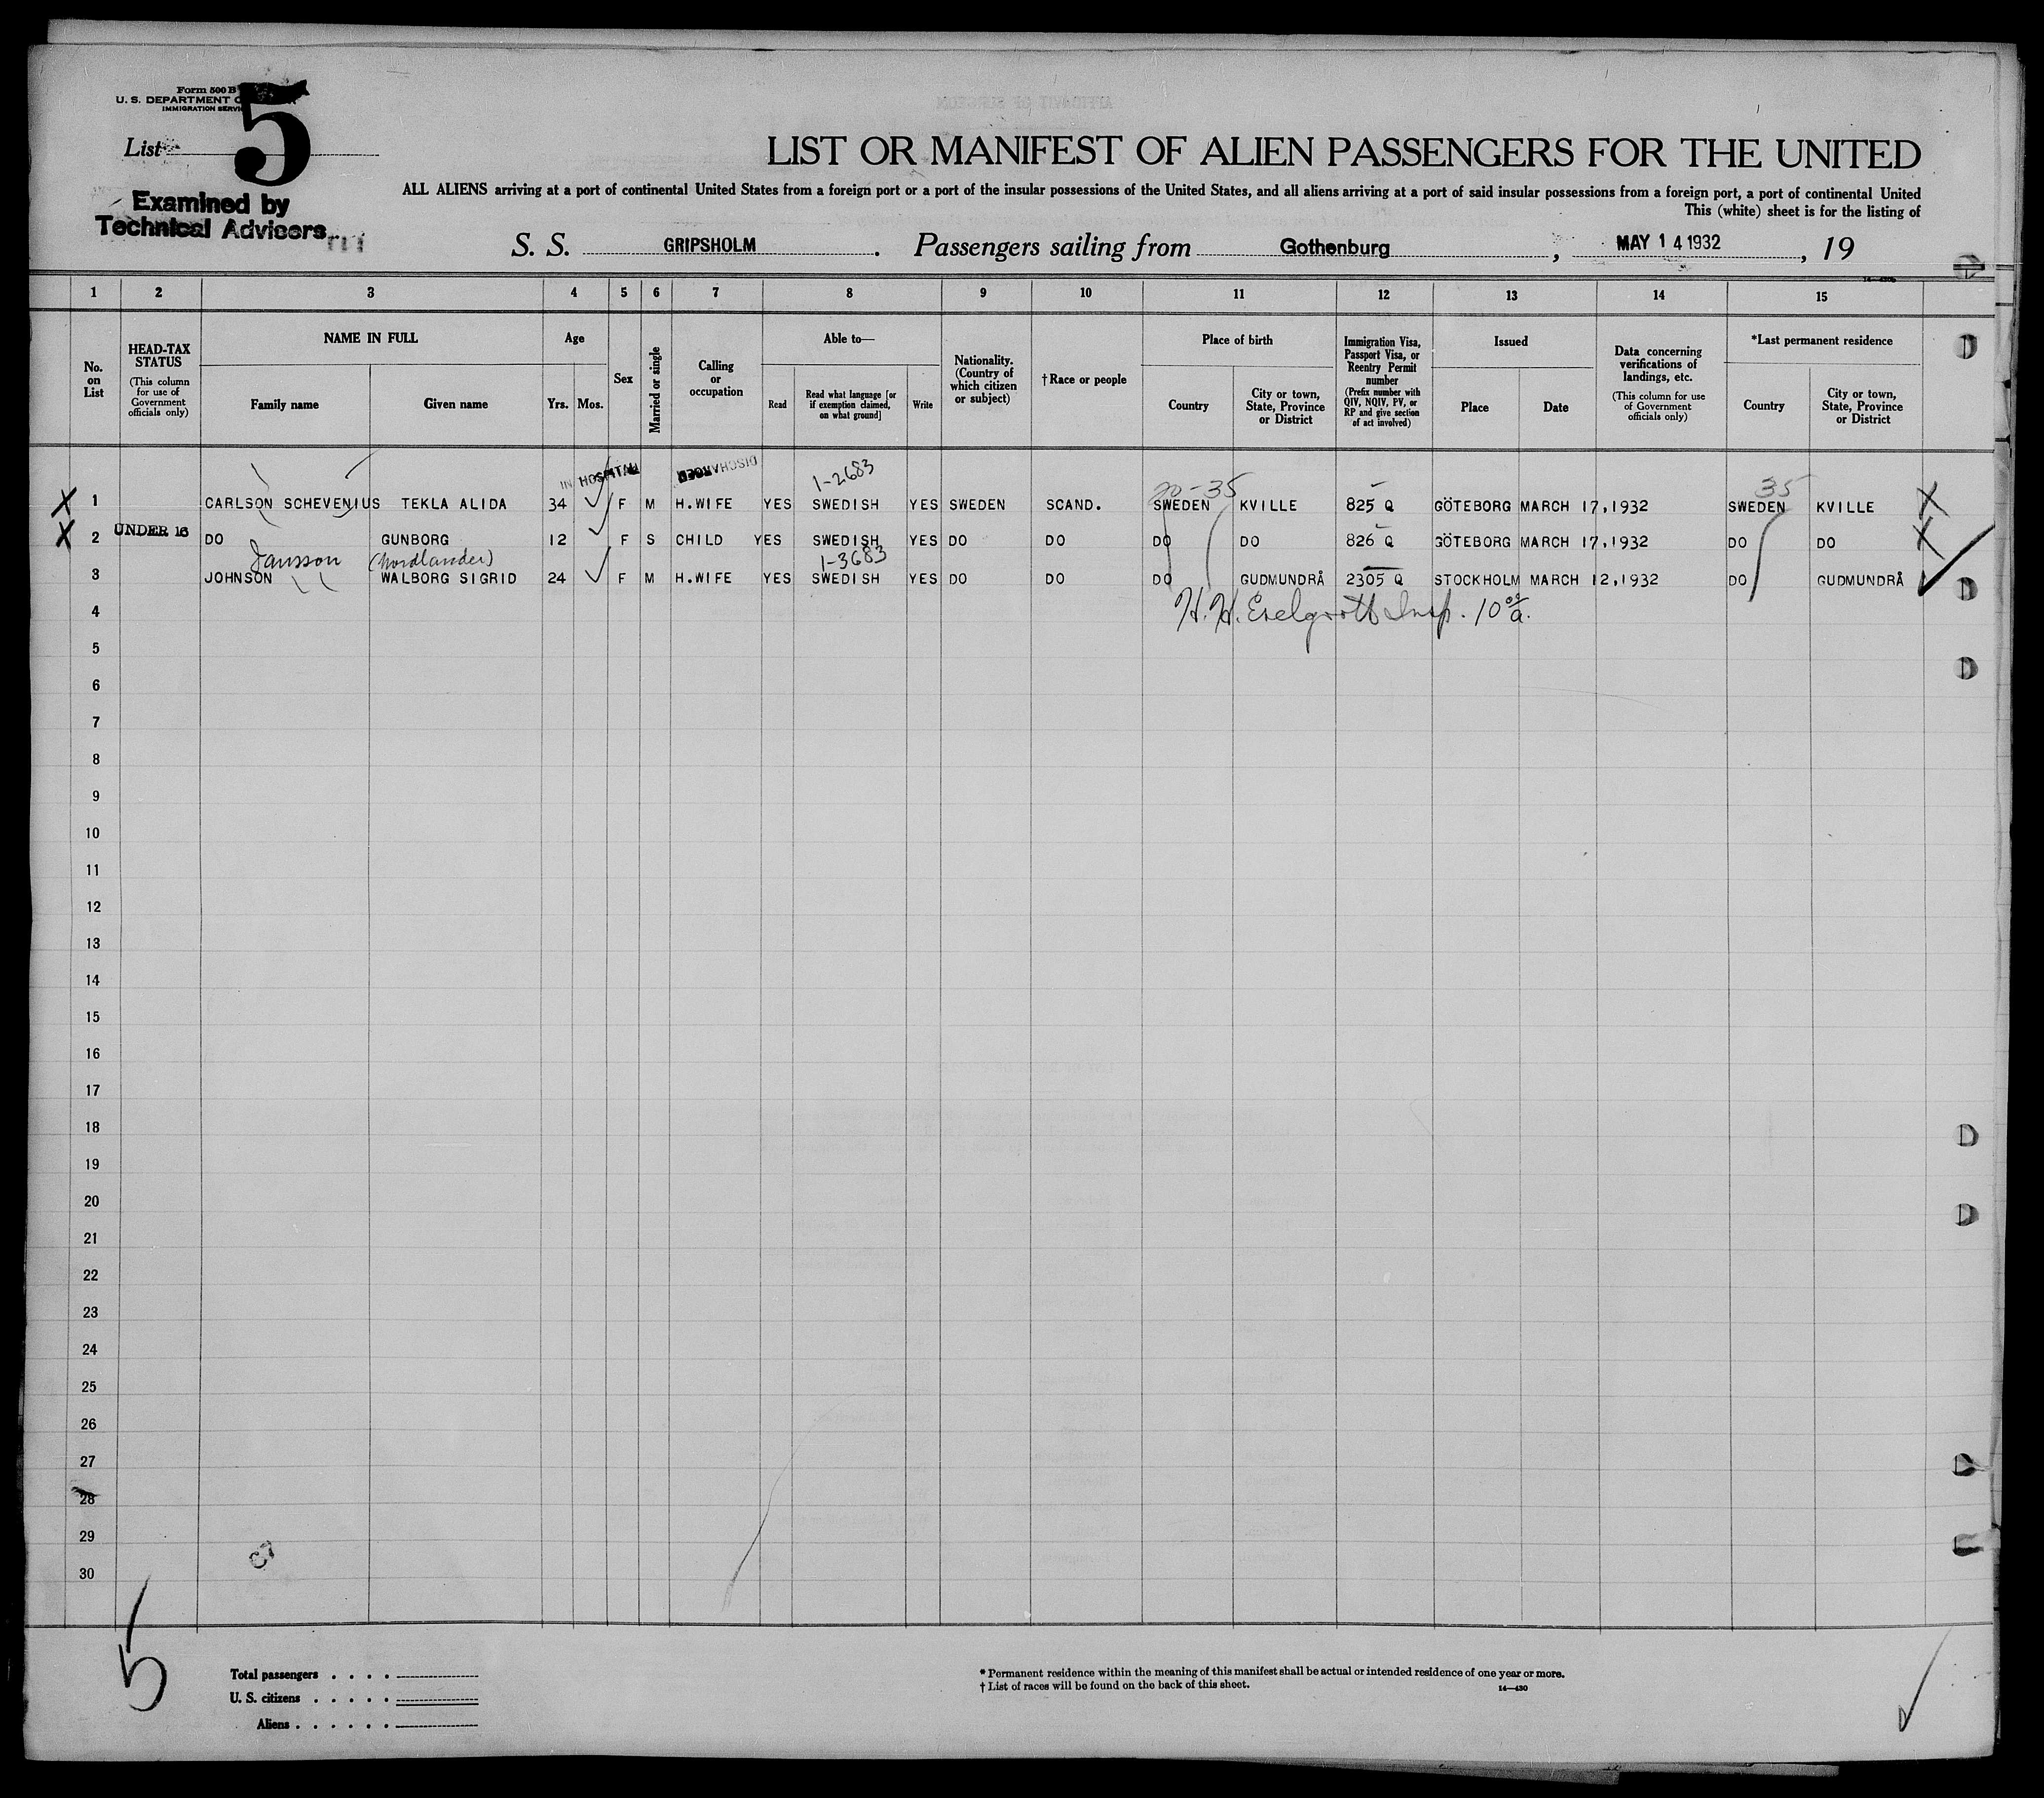 Form 500 B
U. S. DEPARTMENT
IMMIGRATION
List 5
Examined by
Technical Advisers
LIST OR MANIFEST OF ALIEN PASSENGERS FOR THE UNITED
ALL ALIENS arriving at a port of continental United States from a foreign port or a port of the insular possessions of the United States, and all aliens arriving at a port of said insular possessions from a foreign port, a port of continental United
This (white) sheet is for the listing of
S. S. GRIPSHOLM. Passengers sailing from Gothenburg, MAY 14 1932, 19
1 2 3 4 5 6 7 8 9 10 11 12 13 14 15
No. on List
HEAD-TAX STATUS
(This column for use of Government officials only)
NAME IN FULL
Family name Given name
Age
Yrs. Mos.
Sex
Married or single
Calling or occupation
Able to—
Read
Read what language [or if exemption claimed, on what ground]
Write
Nationality. (Country of which citizen or subject)
† Race or people
Place of birth
Country
City or town, State, Province or District
Immigration Visa, Passport Visa, or Reentry Permit number
(Prefix number with QIV, NQIV, PV, or RP and give section of act involved)
Issued
Place Date
Data concerning verifications of landings, etc.
(This column for use of Government officials only)
*Last permanent residence
Country
City or town, State, Province or District
IN HOSPITAL DISCHARGED 1-2683 35
X 1 CARLSON SCHEVENIUS TEKLA ALIDA 34 F M H.WIFE YES SWEDISH YES SWEDEN SCAND. SWEDEN KVILLE 825 Q GÖTEBORG MARCH 17,1932 SWEDEN KVILLE X
X 2 UNDER 16 DO GUNBORG 12 F S CHILD YES SWEDISH YES DO DO DO DO 826 Q GÖTEBORG MARCH 17,1932 DO DO X
Jansson (Nordlander) 1-3683
3 JOHNSON WALBORG SIGRID 24 F M H.WIFE YES SWEDISH YES DO DO DO GUDMUNDRÅ 2305 Q STOCKHOLM MARCH 12,1932 DO GUDMUNDRÅ
4
5
6
7
8
9
10
11
12
13
14
15
16
17
18
19
20
21
22
23
24
25
26
27
28
29
30
5
Total passengers . . . .
U. S. citizens . . . . .
Aliens . . . . . .
* Permanent residence within the meaning of this manifest shall be actual or intended residence of one year or more.
† List of races will be found on the back of this sheet.
14—430